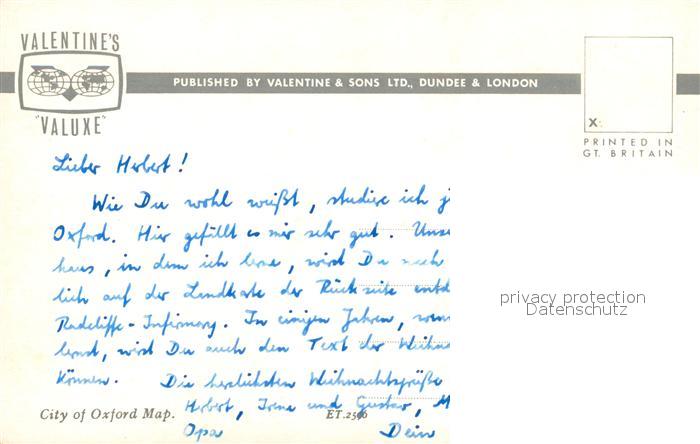 VALENTINE'S
"VALUXE"
PUBLISHED BY VALENTINE & SONS LTD., DUNDEE & LONDON
X
PRINTED IN
GT. BRITAIN
Lieber Herbert!
Wie Du wohl weißt, studiere ich
Oxford. Hier gefällt es mir sehr gut.
haus, in dem ich lerne, wird Du
lich auf der Landkarte der Rückseite
Radcliffe-Infirmary. In einigen Jahren,
lernst, wird Du auch den Text der
können. Die herzlichsten Weihnachtsgrüße
Herbert, Irene und Gustav,
Opa Dein
City of Oxford Map. ET.2596
privacy protection
Datenschutz